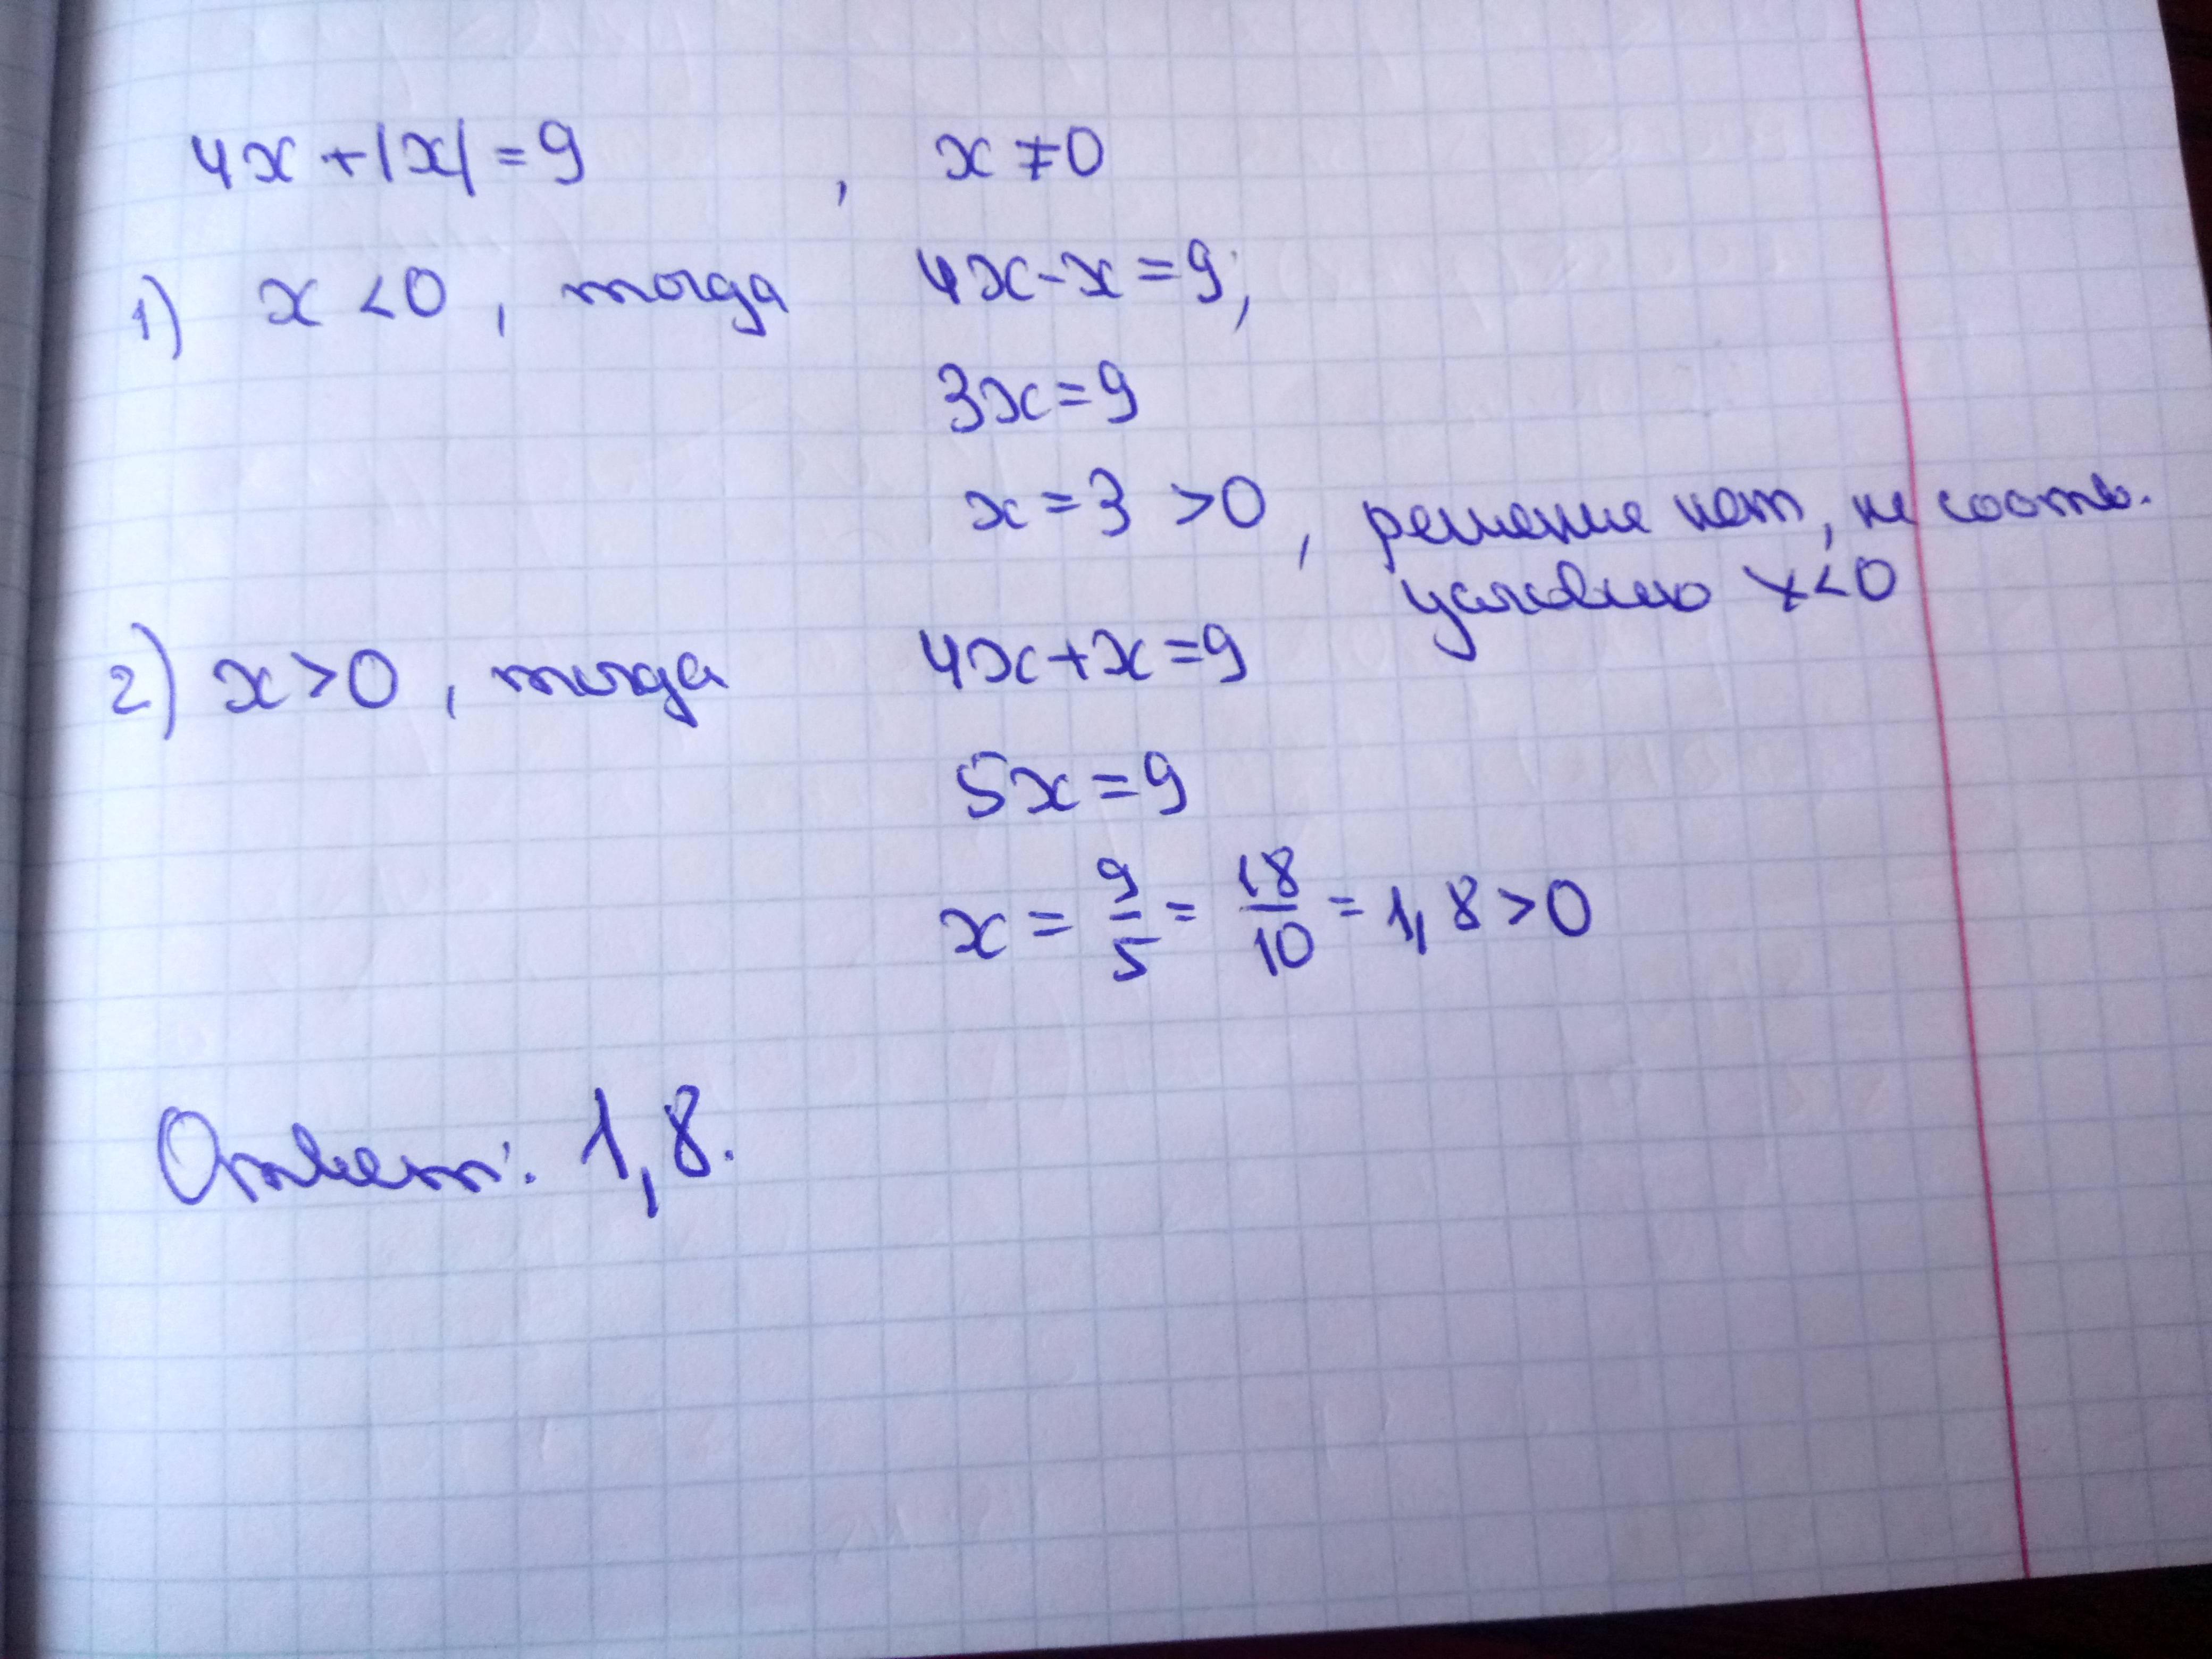 4x + |x| = 9 , x ≠ 0
1) x < 0 , тогда 4x - x = 9;
3x = 9
x = 3 > 0 , решение нет, не соотв.
условию x < 0
2) x > 0 , тогда 4x + x = 9
5x = 9
x = 9/5 = 18/10 = 1,8 > 0
Ответ: 1,8.